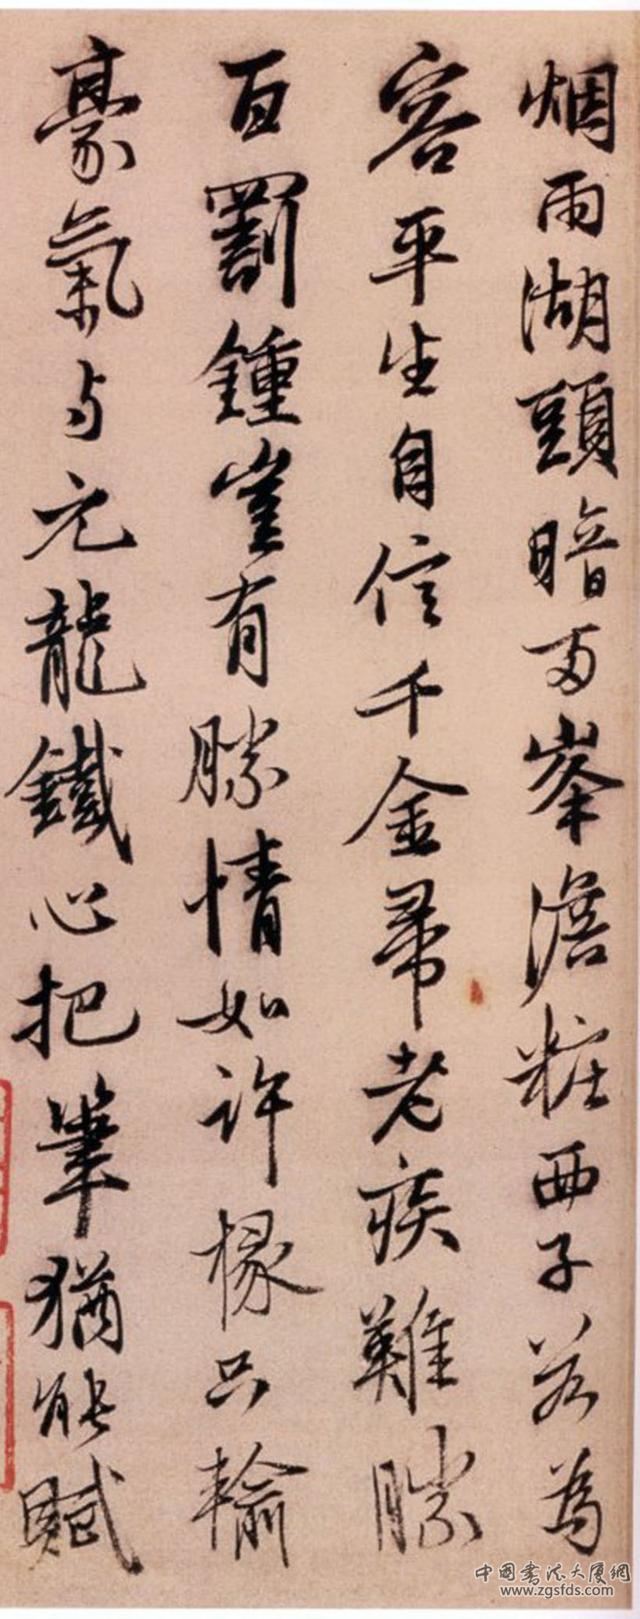 烟雨湖頭暗両峯澹粧西子若為
容平生自信千金帚老疾難勝
百罰鍾豈有勝情如許椽只輸
豪氣与元龍鐵心把筆猶能賦
中国书法大厦網
www.zgsfds.com